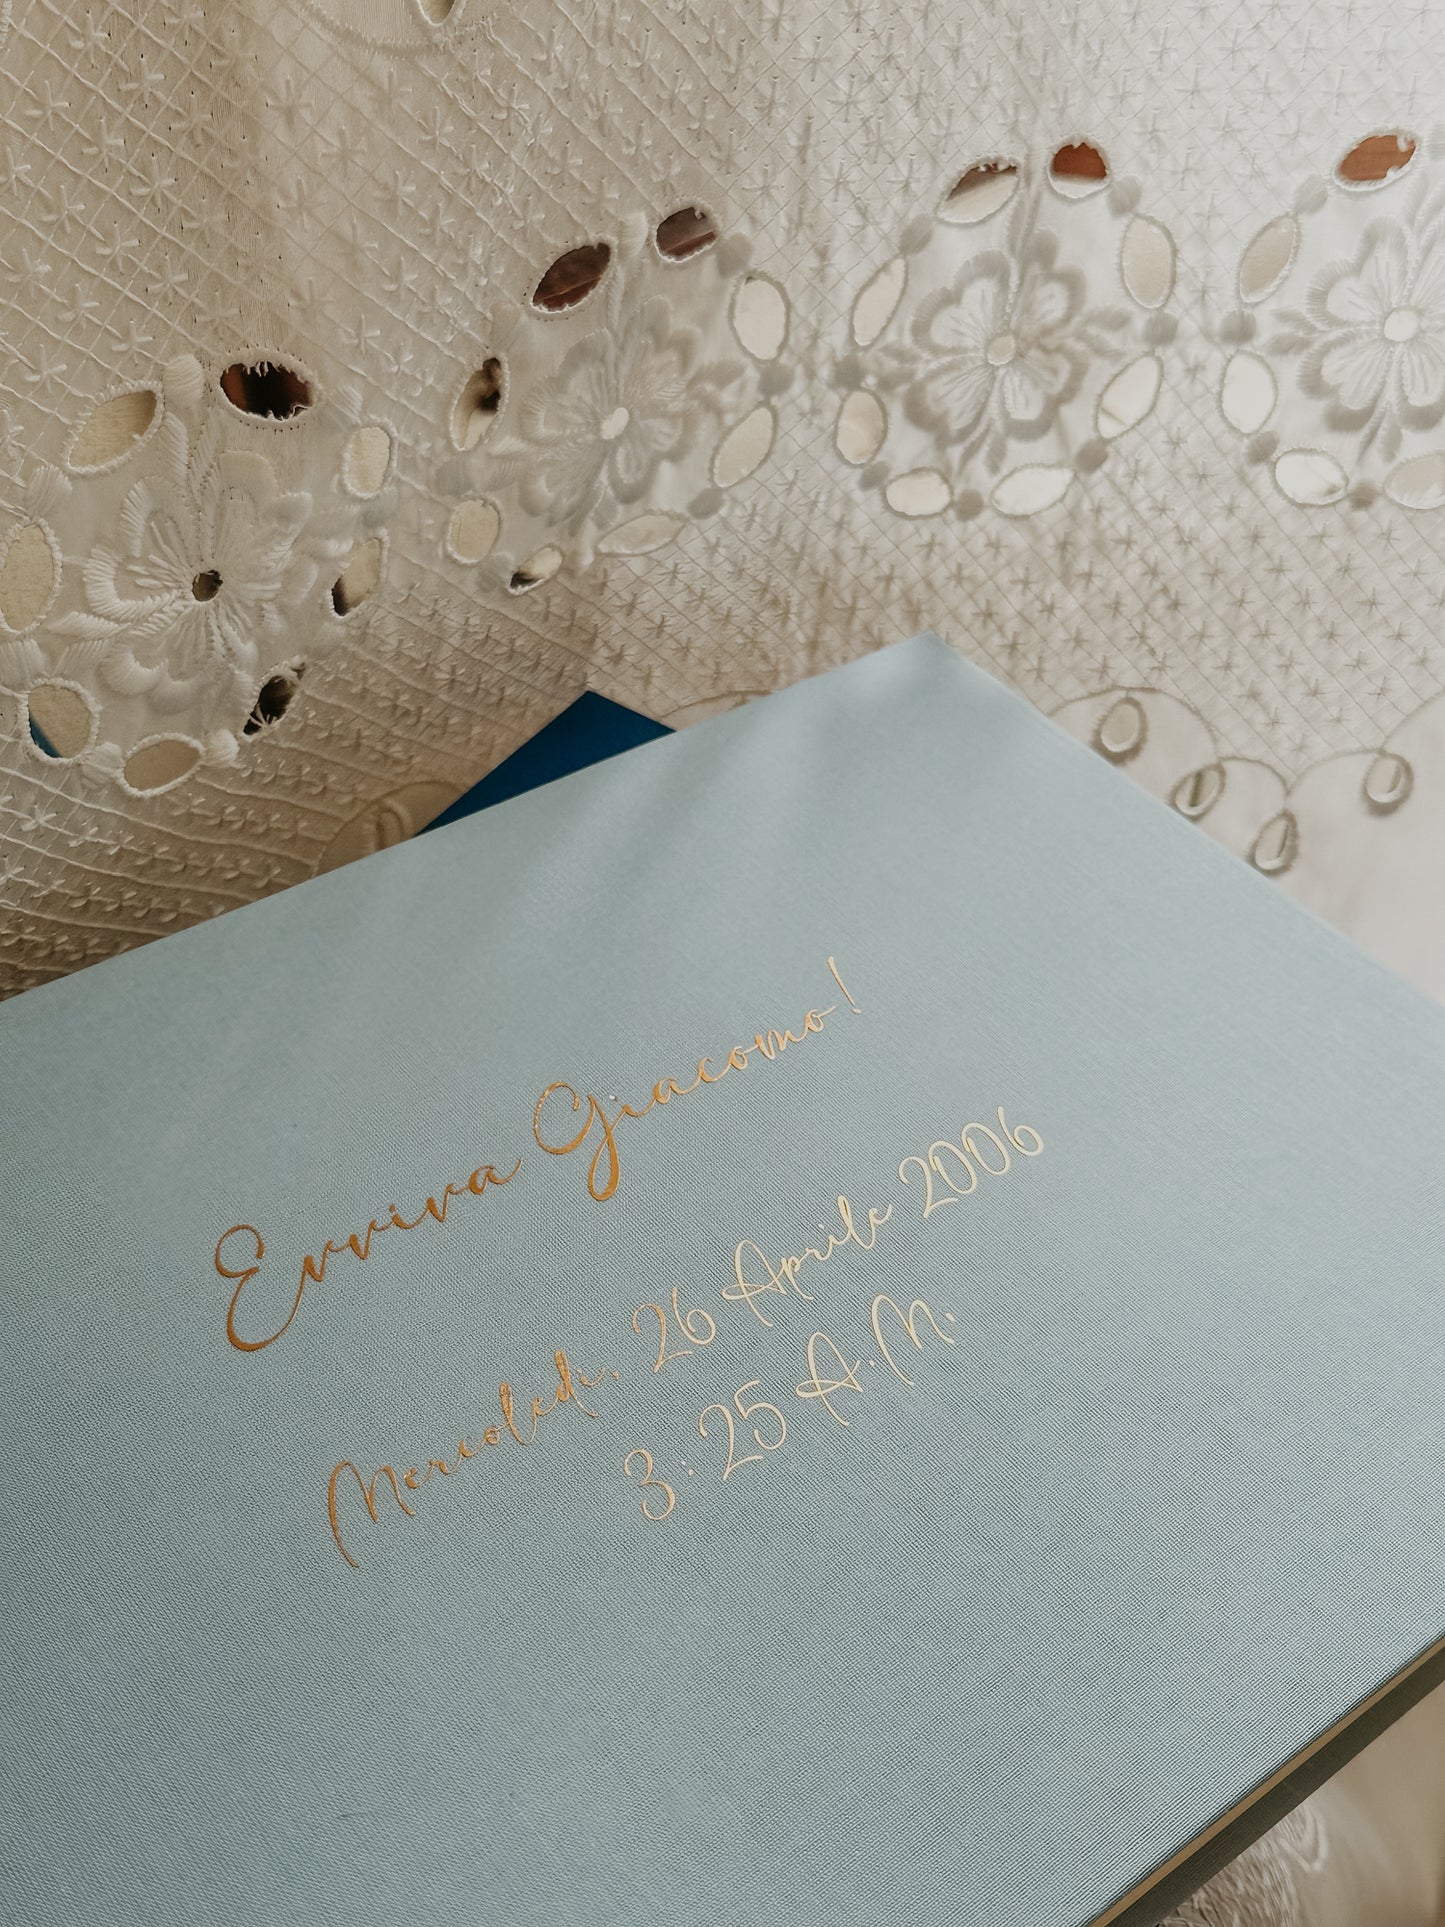 Evviva Giacomo!
Mercoledi, 26 Aprile 2006
3:25 A.M.